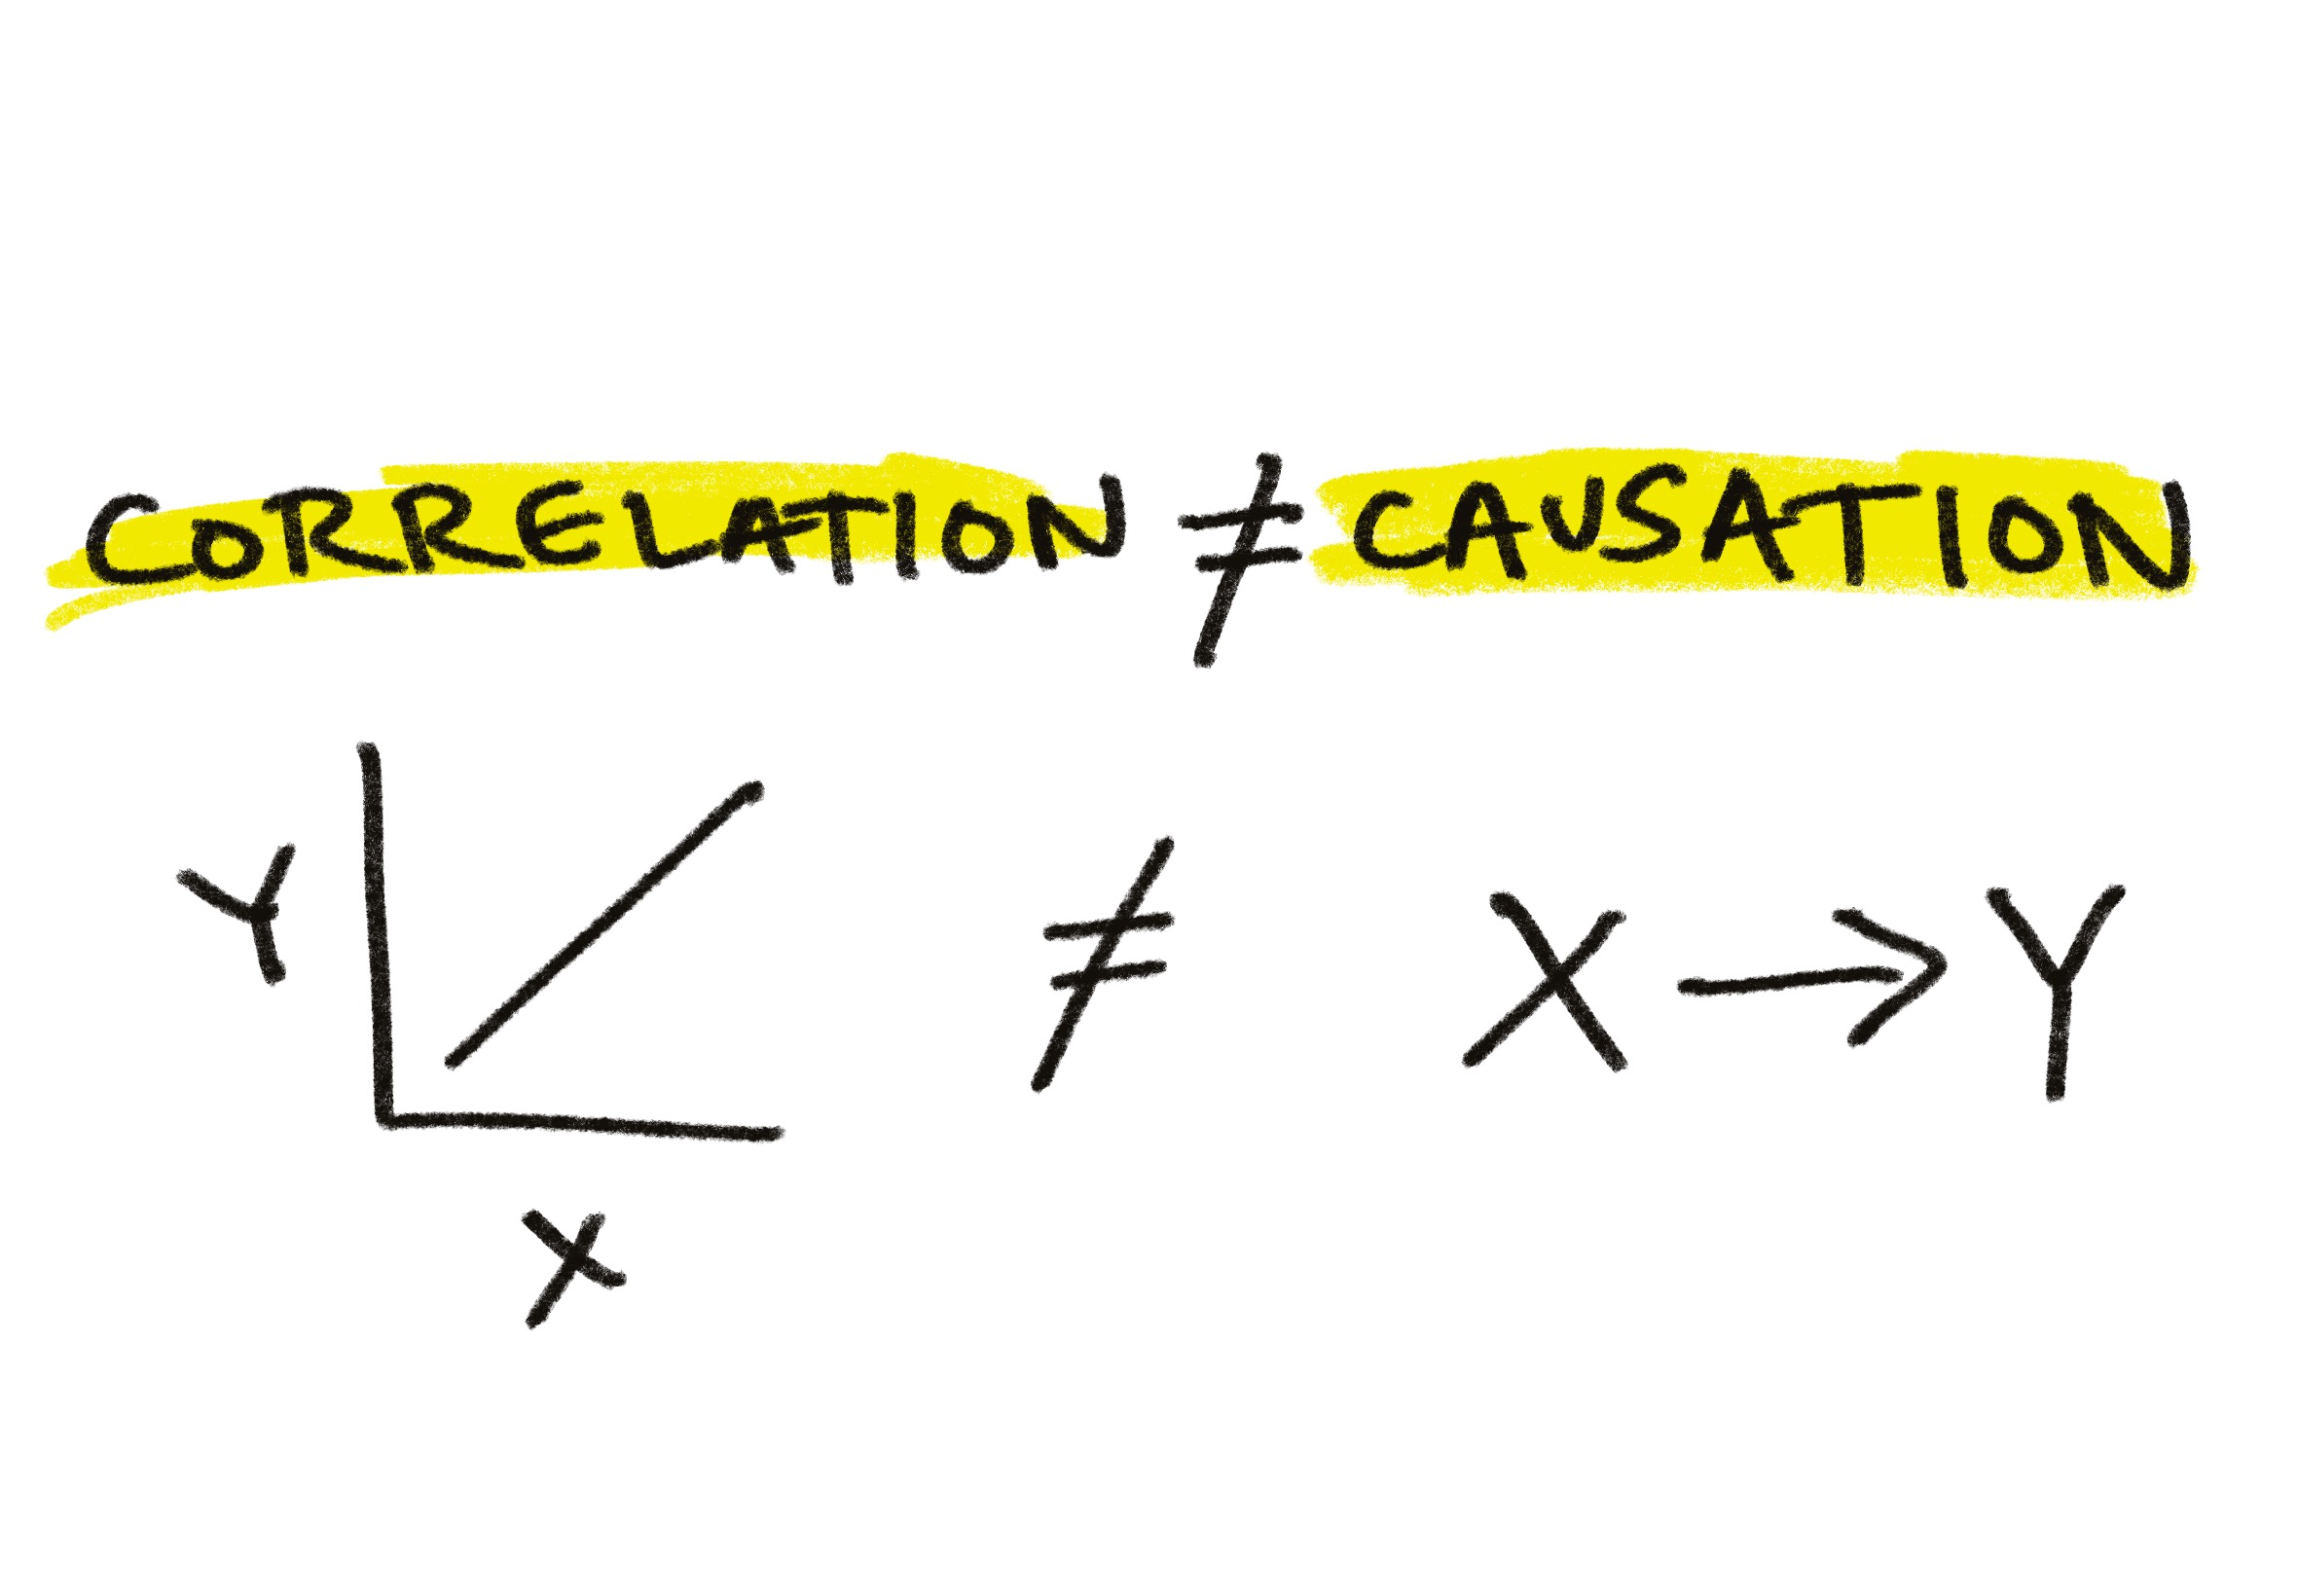 CORRELATION ≠ CAUSATION
Y ≠ X → Y
X